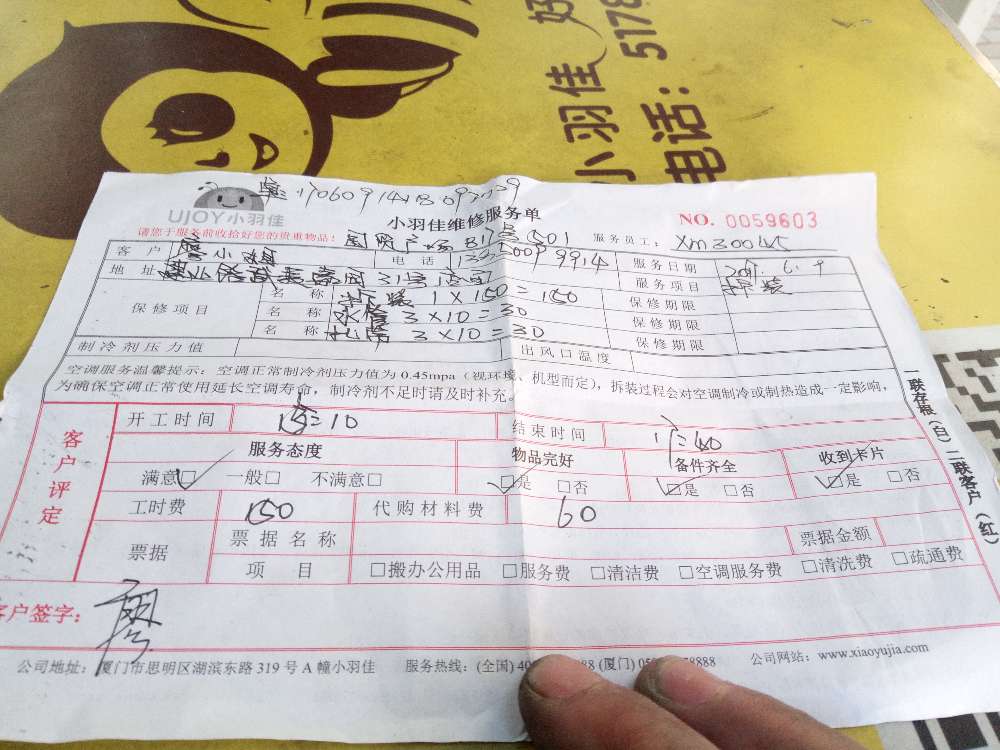 小羽佳 好
电话：5178
UJOY小羽佳
小羽佳维修服务单
NO. 0059603
请您于服务前收拾好您的贵重物品！
服务员工：
客户 廖小姐 电话 服务日期
地址 服务项目
保修项目 名称 1×150=150 保修期限
名称 水管 3×10=30 保修期限
名称 3×10=30 保修期限
制冷剂压力值 出风口温度
空调服务温馨提示：空调正常制冷剂压力值为0.45mpa（视环境、机型而定），拆装过程会对空调制冷或制热造成一定影响，
为确保空调正常使用延长空调寿命，制冷剂不足时请及时补充。
一联存根（白）二联客户（红）
客户评定
开工时间 结束时间
服务态度 物品完好 备件齐全 收到卡片
满意□ 一般□ 不满意□ □是 □否 □是 □否 □是 □否
工时费 150 代购材料费 60
票据 票据名称 票据金额
项目 □搬办公用品 □服务费 □清洁费 □空调服务费 □清洗费 □疏通费
客户签字： 廖
公司地址：厦门市思明区湖滨东路319号A幢小羽佳 服务热线：(全国) 88 (厦门) 8888 公司网站：www.xiaoyujia.com